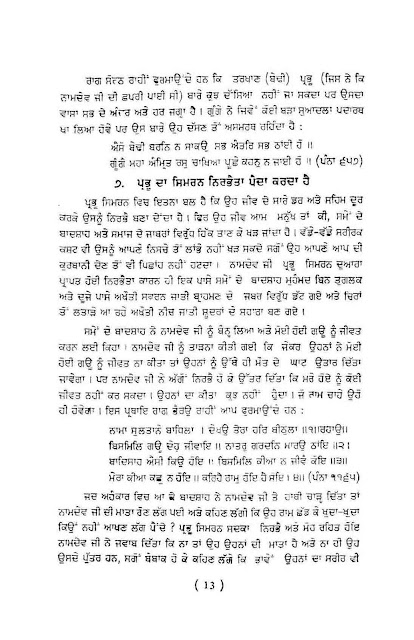 ਰਾਗ ਸੋਰਠ ਰਾਹੀਂ ਫੁਰਮਾਉਂਦੇ ਹਨ ਕਿ ਤਰਖਾਣ (ਬੇਢੀ) ਪ੍ਰਭੂ (ਜਿਸ ਨੇ ਕਿ
ਨਾਮਦੇਵ ਜੀ ਦੀ ਛਪਰੀ ਪਾਈ ਸੀ) ਬਾਰੇ ਕੁਝ ਦੱਸਿਆ ਨਹੀਂ ਜਾ ਸਕਦਾ ਪਰ ਉਸਦਾ
ਵਾਸਾ ਸਭ ਦੇ ਅੰਦਰ ਅਤੇ ਹਰ ਜਗ੍ਹਾ ਹੈ । ਗੂੰਗੇ ਨੇ ਜਿਵੇਂ ਕੋਈ ਬੜਾ ਸੁਆਦਲਾ ਪਦਾਰਥ
ਖਾ ਲਿਆ ਹੋਵੇ ਪਰ ਉਸ ਬਾਰੇ ਉਹ ਦੱਸਣ ਤੋਂ ਅਸਮਰਥ ਰਹਿੰਦਾ ਹੈ :
ਐਸੋ ਬੇਢੀ ਬਰਨਿ ਨ ਸਾਕਉ ਸਭ ਅੰਤਰਿ ਸਭ ਠਾਂਈ ਹੋ ॥
ਗੂੰਗੈ ਮਹਾ ਅੰਮ੍ਰਿਤ ਰਸੁ ਚਾਖਿਆ ਪੂਛੇ ਕਹਨੁ ਨ ਜਾਈ ਹੋ ॥ (ਪੰਨਾ ੬੫੭)
੭. ਪ੍ਰਭੂ ਦਾ ਸਿਮਰਨ ਨਿਰਭੈਤਾ ਪੈਦਾ ਕਰਦਾ ਹੈ
ਪ੍ਰਭੂ ਸਿਮਰਨ ਵਿਚ ਇਤਨਾ ਬਲ ਹੈ ਕਿ ਉਹ ਜੀਵ ਦੇ ਸਾਰੇ ਡਰ ਅਤੇ ਸਹਿਮ ਦੂਰ
ਕਰਕੇ ਉਸਨੂੰ ਨਿਰਭੈ ਬਣਾ ਦੇਂਦਾ ਹੈ । ਫਿਰ ਉਹ ਜੀਵ ਆਮ ਮਨੁੱਖ ਤਾਂ ਕੀ, ਸਮੇਂ ਦੇ
ਬਾਦਸ਼ਾਹ ਅਤੇ ਸਮਾਜ ਦੇ ਜਾਬਰਾਂ ਵਿਰੁੱਧ ਹਿੱਕ ਤਾਣ ਕੇ ਖੜ ਜਾਂਦਾ ਹੈ । ਵੱਡੇ-ਵੱਡੇ ਸਰੀਰਕ
ਕਸ਼ਟ ਵੀ ਉਸਨੂੰ ਆਪਣੇ ਨਿਸਚੇ ਤੋਂ ਲਾਂਭੇ ਨਹੀਂ ਖੜ ਸਕਦੇ ਸਗੋਂ ਉਹ ਆਪਣੇ ਆਪ ਦੀ
ਕੁਰਬਾਨੀ ਦੇਣ ਤੋਂ ਵੀ ਪਿਛਾਂਹ ਨਹੀਂ ਹਟਦਾ । ਨਾਮਦੇਵ ਜੀ ਪ੍ਰਭੂ ਸਿਮਰਨ ਦੁਆਰਾ
ਪ੍ਰਾਪਤ ਹੋਈ ਨਿਰਭੈਤਾ ਕਾਰਨ ਹੀ ਇਕ ਪਾਸੇ ਸਮੇਂ ਦੇ ਬਾਦਸ਼ਾਹ ਮੁਹੰਮਦ ਬਿਨ ਤੁਗਲਕ
ਅਤੇ ਦੂਜੇ ਪਾਸੇ ਅਖੌਤੀ ਜਾਤੀ ਬ੍ਰਾਹਮਣ ਦੇ ਜਬਰ ਵਿਰੁੱਧ ਡੱਟ ਗਏ ਅਤੇ ਚਿਰਾਂ
ਤੋਂ ਲਤਾੜੇ ਆ ਰਹੇ ਅਖੌਤੀ ਨੀਚ ਜਾਤੀ ਸ਼ੂਦਰਾਂ ਦੇ ਸਹਾਰਾ ਬਣ ਗਏ ।
ਸਮੇਂ ਦੇ ਬਾਦਸ਼ਾਹ ਨੇ ਨਾਮਦੇਵ ਜੀ ਨੂੰ ਬੰਨ੍ਹ ਲਿਆ ਅਤੇ ਮੋਈ ਹੋਈ ਗਊ ਨੂੰ ਜੀਵਤ
ਕਰਨ ਲਈ ਕਿਹਾ । ਨਾਮਦੇਵ ਜੀ ਨੂੰ ਤਾੜਨਾ ਕੀਤੀ ਗਈ ਕਿ ਜੇਕਰ ਉਹਨਾਂ ਨੇ ਮੋਈ
ਹੋਈ ਗਊ ਨੂੰ ਜੀਵਤ ਨਾ ਕੀਤਾ ਤਾਂ ਉਹਨਾਂ ਨੂੰ ਉੱਥੇ ਹੀ ਮੌਤ ਦੇ ਘਾਟ ਉਤਾਰ ਦਿੱਤਾ
ਜਾਵੇਗਾ । ਪਰ ਨਾਮਦੇਵ ਜੀ ਨੇ ਅੱਗੋਂ ਨਿਰਭੈ ਹੋ ਕੇ ਉੱਤਰ ਦਿੱਤਾ ਕਿ ਮਰੇ ਹੋਏ ਨੂੰ ਕੋਈ
ਜੀਵਤ ਨਹੀਂ ਕਰ ਸਕਦਾ । ਉਹਨਾਂ ਦਾ ਕੀਤਾ ਕੁਝ ਨਹੀਂ ਹੁੰਦਾ । ਜੋ ਰਾਮ ਚਾਹੇ ਉਹੋ
ਹੀ ਹੋਵੇਗਾ । ਇਸ ਪ੍ਰਥਾਇ ਰਾਗ ਭੈਰਉ ਰਾਹੀਂ ਆਪ ਫੁਰਮਾਉਂਦੇ ਹਨ :
ਨਾਮਾ ਸੁਲਤਾਨੇ ਬਾਧਿਲਾ । ਦੇਖਉ ਤੇਰਾ ਹਰਿ ਬੀਠੁਲਾ ॥੧॥ਰਹਾਉ॥
ਬਿਸਮਿਲਿ ਗਊ ਦੇਹੁ ਜੀਵਾਇ ॥ ਨਾਤਰੁ ਗਰਦਨਿ ਮਾਰਉ ਠਾਂਇ ॥੨।
ਬਾਦਿਸਾਹ ਐਸੀ ਕਿਉ ਹੋਇ ॥ ਬਿਸਮਿਲਿ ਕੀਆ ਨ ਜੀਵੈ ਕੋਇ ॥੩॥
ਮੇਰਾ ਕੀਆ ਕਛੂ ਨ ਹੋਇ ॥ ਕਰਿਹੈ ਰਾਮੁ ਹੋਇ ਹੈ ਸੋਇ । ੪॥ (ਪੰਨਾ ੧੧੬੫)
ਜਦ ਅਹੰਕਾਰ ਵਿਚ ਆ ਕੇ ਬਾਦਸ਼ਾਹ ਨੇ ਨਾਮਦੇਵ ਜੀ ਤੇ ਹਾਥੀ ਚਾੜ੍ਹ ਦਿੱਤਾ ਤਾਂ
ਨਾਮਦੇਵ ਜੀ ਦੀ ਮਾਤਾ ਰੋਣ ਲੱਗ ਪਈ ਅਤੇ ਕਹਿਣ ਲੱਗੀ ਕਿ ਉਹ ਰਾਮ ਛੱਡ ਕੇ ਖੁਦਾ-ਖੁਦਾ
ਕਿਉਂ ਨਹੀਂ ਆਖਣ ਲੱਗ ਪੈਂਦੇ ? ਪ੍ਰਭੂ ਸਿਮਰਨ ਸਦਕਾ ਨਿਰਭੈ ਅਤੇ ਮੋਹ ਰਹਿਤ ਹੋਇ
ਨਾਮਦੇਵ ਜੀ ਨੇ ਜਵਾਬ ਦਿੱਤਾ ਕਿ ਨਾ ਤਾਂ ਉਹ ਉਹਨਾਂ ਦੀ ਮਾਤਾ ਹੈ ਅਤੇ ਨਾ ਹੀ ਉਹ
ਉਸਦੇ ਪੁੱਤਰ ਹਨ, ਸਗੋਂ ਬੇਬਾਕ ਹੋ ਕੇ ਕਹਿਣ ਲੱਗੇ ਕਿ ਭਾਵੇਂ ਉਹਨਾਂ ਦਾ ਸਰੀਰ ਵੀ
( 13 )